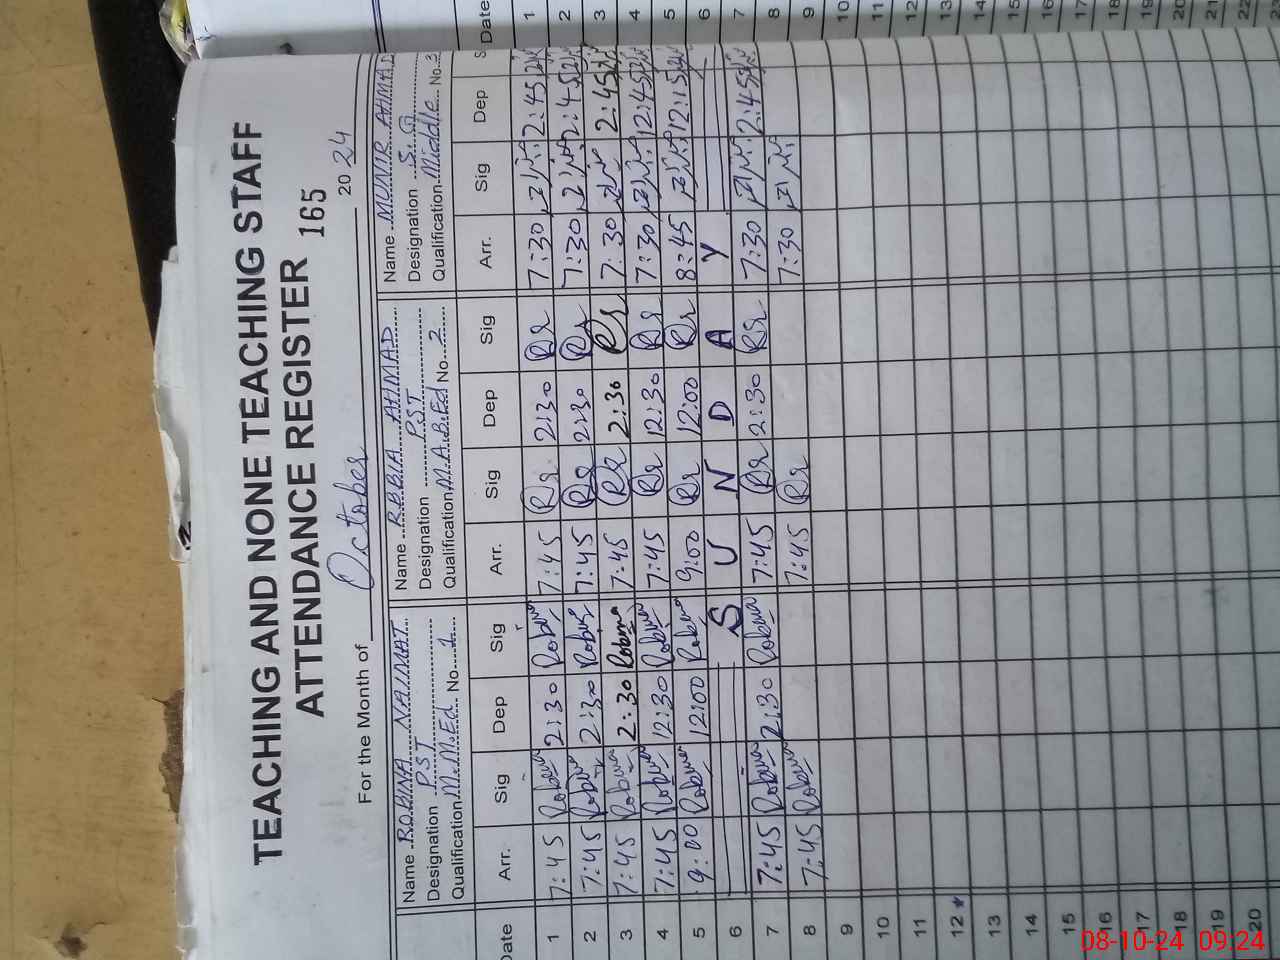 TEACHING AND NONE TEACHING STAFF
ATTENDANCE REGISTER 165
For the Month of October 2024
Name ROBINA NAIMAT Name RBBIA AHMAD Name MUNIR AHMAD
Designation PST Designation PST Designation S. G
Qualification M.M.Ed No. 1 Qualification M.A.B.Ed No. 2 Qualification Middle No. 3
Date Arr. Sig Dep Sig Arr. Sig Dep Sig Arr. Sig Dep S Date
1 7:45 Robina 2:30 Robina 7:45 Rr 2:30 Rr 7:30 2:45 1
2 7:45 Robina 2:30 Robina 7:45 Rr 2:30 Rr 7:30 2:45 2
3 7:45 Robina 2:30 Robina 7:45 Rr 2:30 Rr 7:30 2:45 3
4 7:45 Robina 12:30 Robina 7:45 Rr 12:30 Rr 7:30 12:45 4
5 9:00 Robina 12:00 Robina 9:00 Rr 12:00 Rr 8:45 12:15 5
6 S U N D A Y 6
7 7:45 Robina 2:30 Robina 7:45 Rr 2:30 Rr 7:30 2:45 7
8 7:45 Robina 7:45 Rr 7:30 8
9 9
10 10
11 11
12 12
13 13
14 14
15 15
16 16
17 17
18 18
19 19
20 20
21
22
08-10-24 09:24